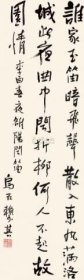 誰家玉笛暗飛聲散入東風滿洛
城此夜曲中聞折柳何人不起故
園情 李白春夜洛城聞笛